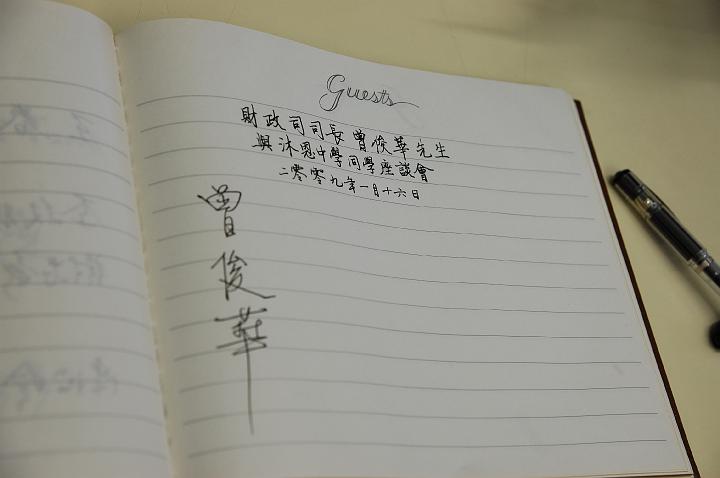 Guests
財政司司長曾俊華先生
與沐恩中學同學座談會
二零零九年一月十六日
曾俊華